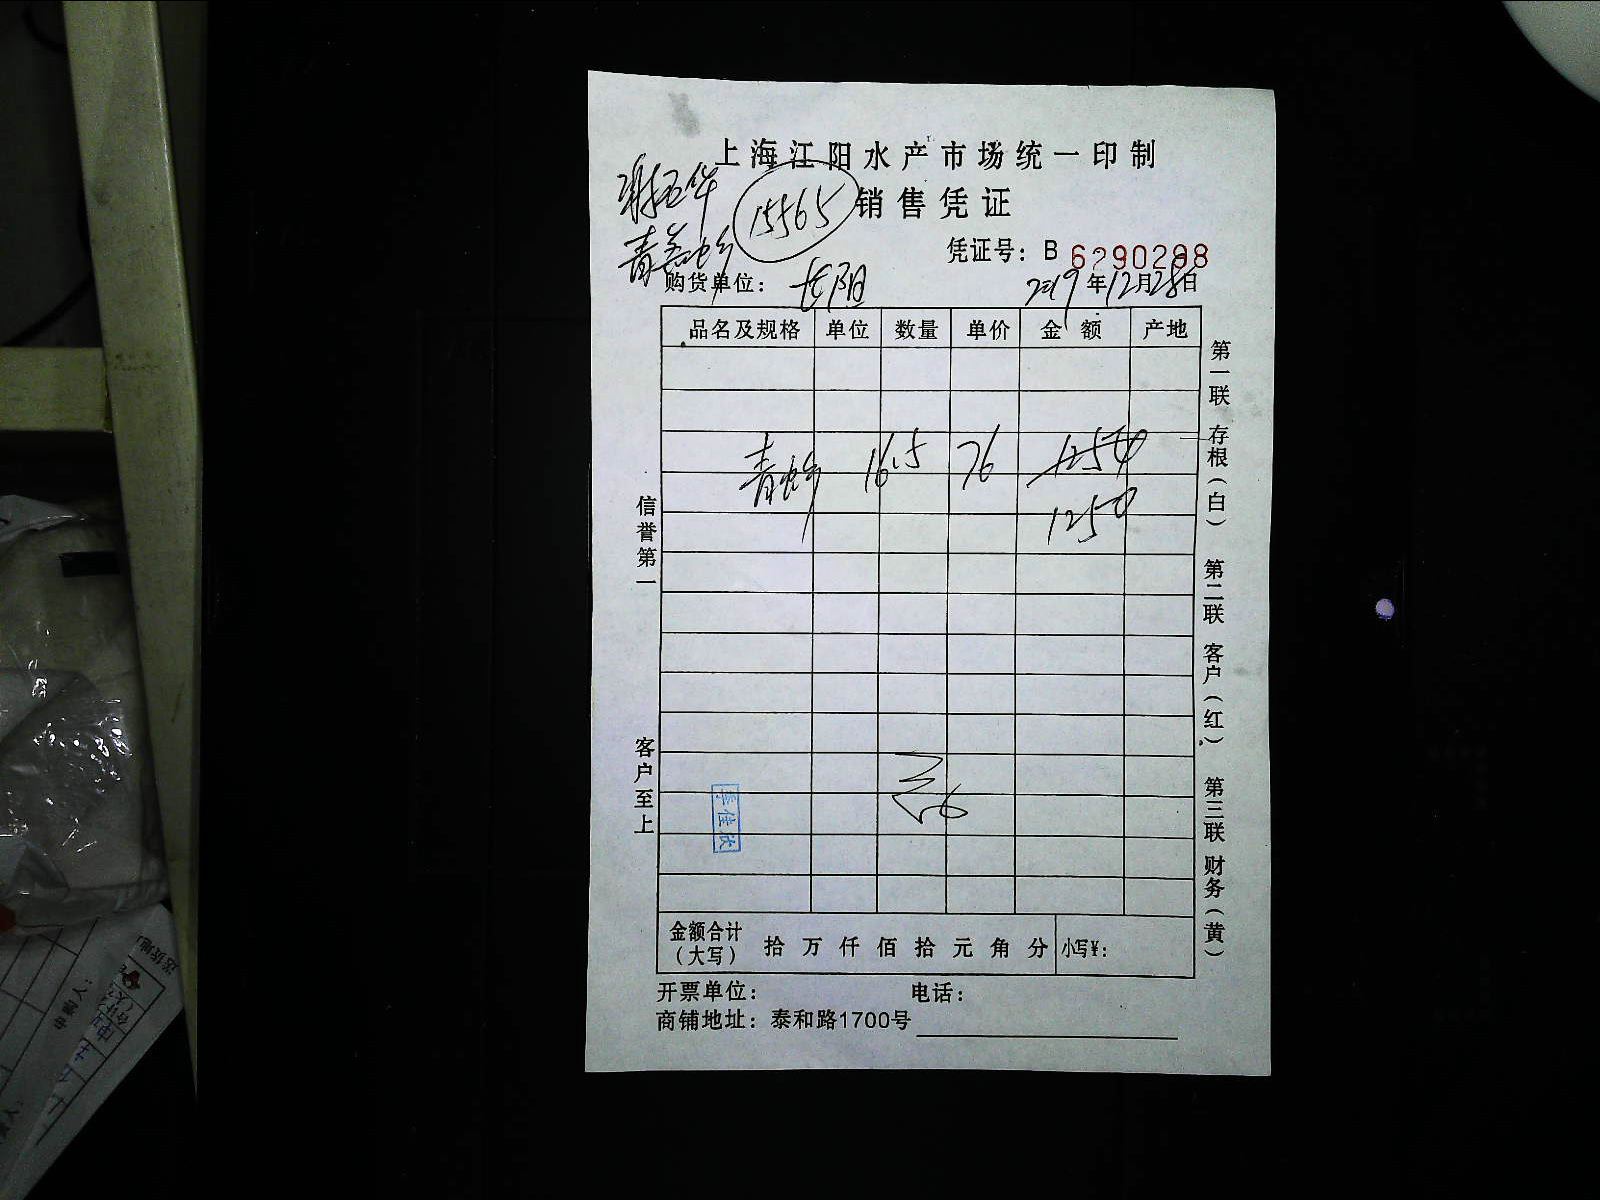 上海江阳水产市场统一印制
15565
销售凭证
凭证号：B 6290298
购货单位：长阳
2019年12月28日
品名及规格 单位 数量 单价 金额 产地
青蛤 16.5 76 1254
1254
信誉第一
客户至上
第一联 存根（白）
第二联 客户（红）
第三联 财务（黄）
李佳欢
金额合计（大写） 拾 万 仟 佰 拾 元 角 分 小写¥：
开票单位： 电话：
商铺地址：泰和路1700号